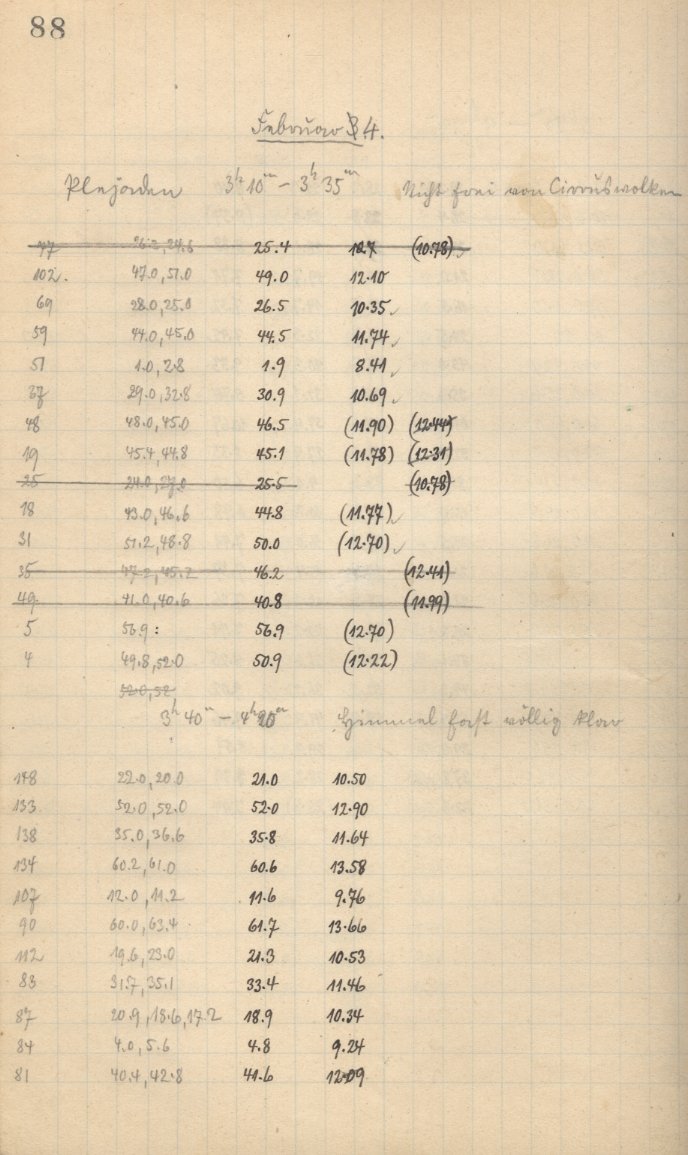 88
Februar 4.
Plejaden 3h 10m – 3h 35m Nicht frei von Cirruswolken
77 26.2, 24.6 25.4 (10.78)
102. 47.0, 51.0 49.0 12.10
69 28.0, 25.0 26.5 10.35
59 44.0, 45.0 44.5 11.74
51 1.0, 2.8 1.9 8.41
37 29.0, 32.8 30.9 10.69
48 48.0, 45.0 46.5 (11.90) (12.44)
19 45.4, 44.8 45.1 (11.78) (12.31)
25 24.0, 27.0 25.5 (10.78)
18 43.0, 46.6 44.8 (11.77)
31 51.2, 48.8 50.0 (12.70)
35 47.2, 45.2 46.2 (12.41)
49 41.0, 40.6 40.8 (11.99)
5 56.9: 56.9 (12.70)
4 49.8, 52.0 50.9 (12.22)
52.0, 52
3h 40m – 4h m Himmel fast völlig klar
148 22.0, 20.0 21.0 10.50
133 52.0, 52.0 52.0 12.90
138 35.0, 36.6 35.8 11.64
134 60.2, 61.0 60.6 13.58
107 12.0, 11.2 11.6 9.76
90 60.0, 63.4 61.7 13.66
112 19.6, 23.0 21.3 10.53
83 31.7, 35.1 33.4 11.46
87 20.9, 18.6, 17.2 18.9 10.34
84 4.0, 5.6 4.8 9.24
81 40.4, 42.8 41.6 12.09